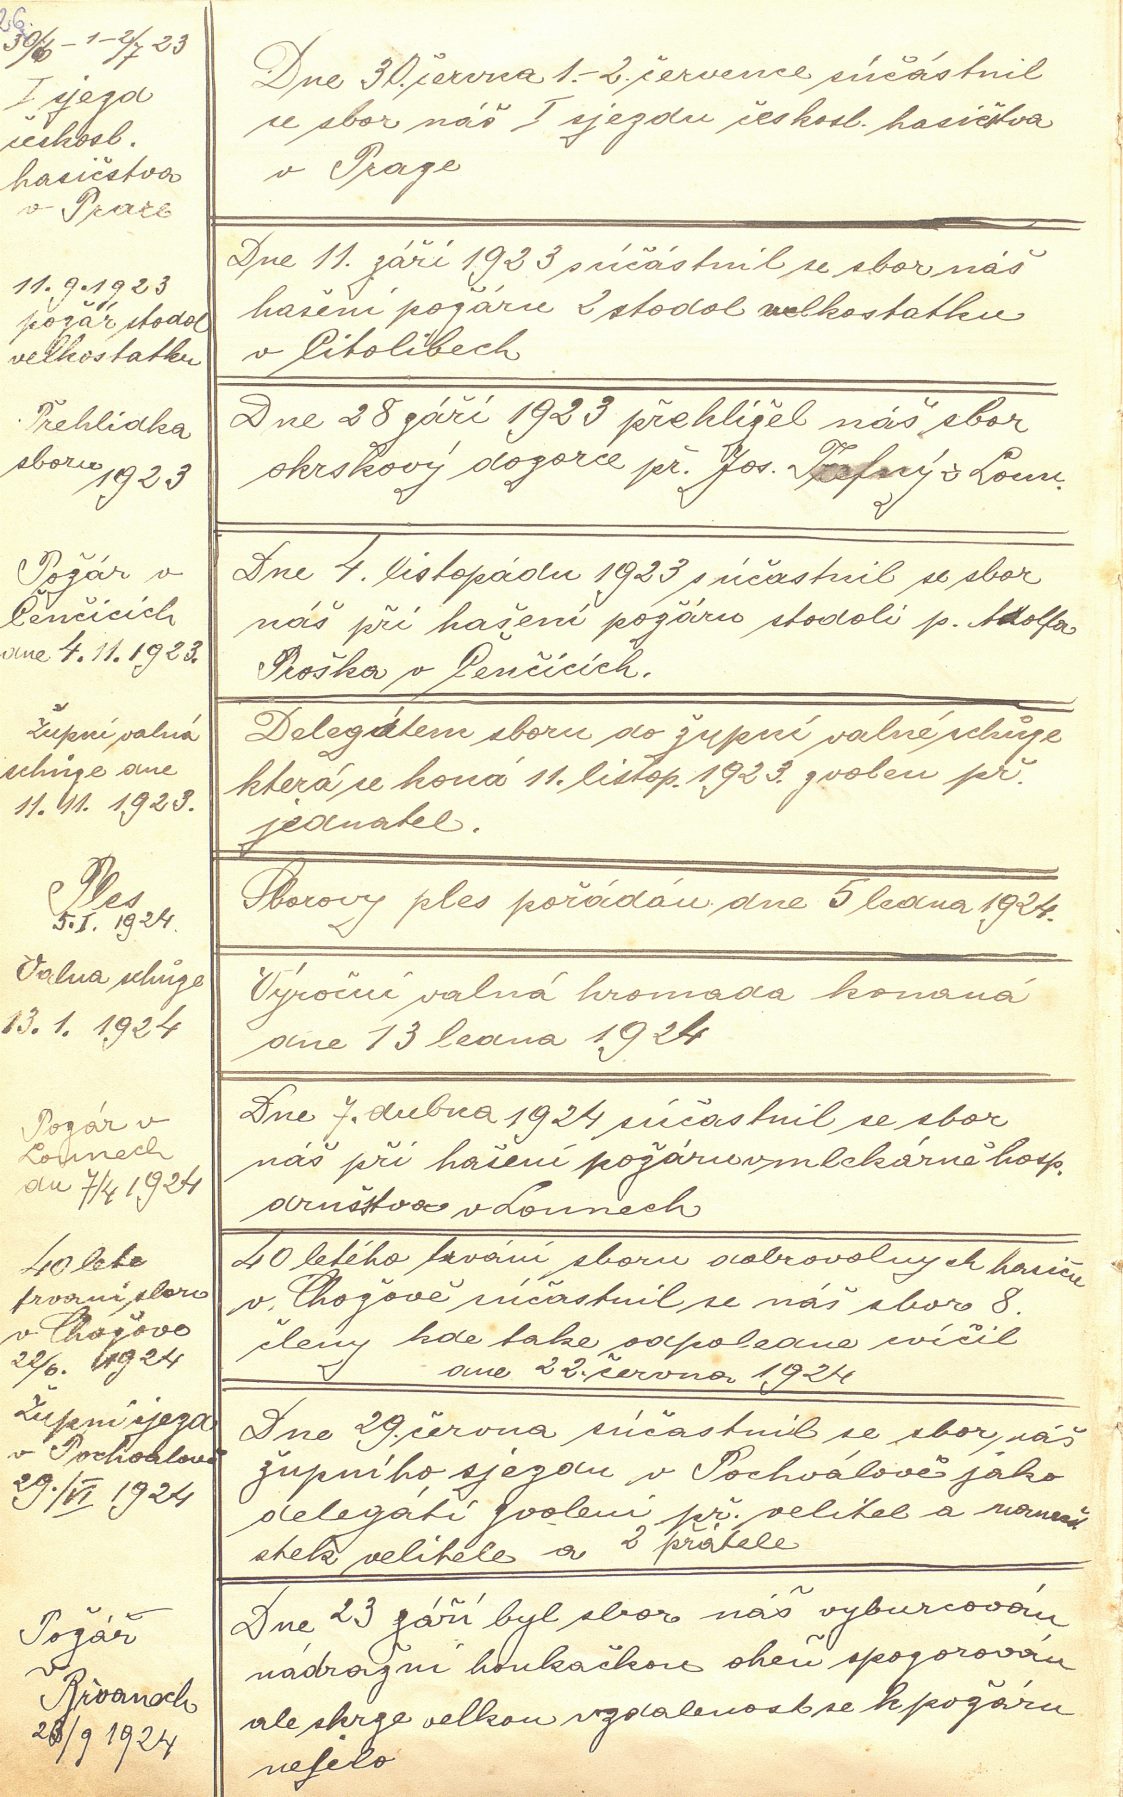 26.
30/6 - 1 - 2/7 23
I sjezd
českosl.
hasičstva
v Praze
Dne 30. června 1.-2. července súčástnil
se sbor náš I sjezdu českosl. hasičstva
v Praze
11. 9. 1923
požár stodol
velkostatku
Dne 11. září 1923 súčástnil se sbor náš
hašení požáru 2 stodol velkostatku
v Citolibech
Přehlídka
sboru
1923
Dne 28 září 1923 přehlížel náš sbor
okrskový dozorce př. Jos. z Loun.
Požár v
Čenčicích
dne 4. 11. 1923.
Dne 4. listopádu 1923 súčastnil se sbor
náš při hašení požáru stodoli p. Adolfa
Proška v Čenčicích.
Župní valná
schůze dne
11. 11. 1923.
Delegátem sboru do župní valné schůze
která se koná 11. listop. 1923. zvolen př.
jednatel.
Ples
5. I. 1924.
Sborovy ples pořádán dne 5 ledna 1924.
Valna schůze
13. 1. 1924
Výroční valná hromada konaná
dne 13 ledna 1924
Požár v
Lounech
dn 7/4 1924
Dne 7. dubna 1924 súčastnil se sbor
náš při hašení požáru v mlekárně hosp.
družstva v Lounech
40 lete
trvani sboru
v Chožove
22/6. 1924
40 letého trvání sboru dobrovolnych hasiču
v. Chožově súčastnil se náš sbor 8.
členy kde take odpoledne cvičil
dne 22. června 1924
Župní sjezd
v Pochvalově
29./VI 1924
Dne 29. června súčastnil se sbor náš
župního sjezdu v Pochválově jako
delegáti zvoleni př. velitel a naměst
stek velitele a 2 přátele
Požář
v
Břvanech
23/9 1924
Dne 23 září byl sbor náš vyburcován
nádražní houkačkou oheň spozorován
ale skrze velkou vzdalenost se k požáru
nejelo